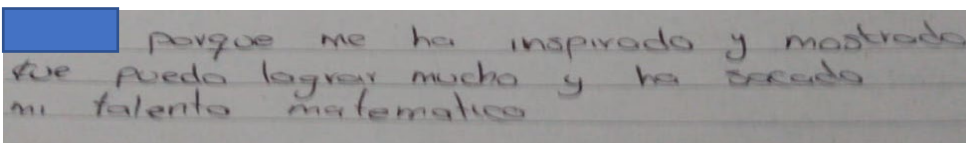 porque me ha inspirado y mostrado
que puedo lograr mucho y ha sacado
mi talento matematico